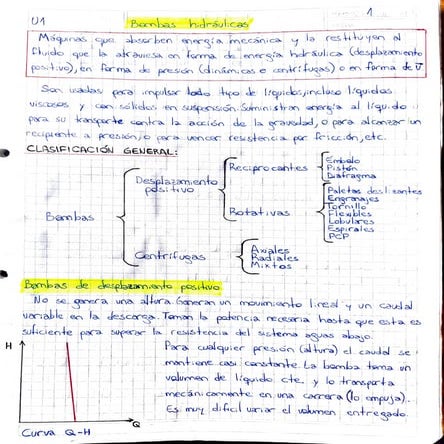 U1
Bombas hidráulicas
1
Máquinas que absorben energía mecánica y la restituyen al
fluido que la atraviesa en forma de energía hidráulica (desplazamiento
positivo), en forma de presión (dinámicas o centrífugas) o en forma de V
Son usadas para impulsar todo tipo de líquidos, incluso líquidos
viscosos y con sólidos en suspensión. Suministran energía al líquido
para su transporte contra la acción de la gravedad, o para alcanzar un
recipiente a presión, o para vencer resistencia por fricción, etc.
CLASIFICACIÓN GENERAL:
Bombas
Desplazamiento
positivo
Reciprocantes
Embolo
Pistón
Diafragma
Rotativas
Paletas deslizantes
Engranajes
Tornillo
Flexibles
Lobulares
Espirales
PCP
Centrífugas
Axiales
Radiales
Mixtos
Bombas de desplazamiento positivo
No se genera una altura. Generan un movimiento lineal y un caudal
variable en la descarga. Toman la potencia necesaria hasta que esta es
suficiente para superar la resistencia del sistema aguas abajo.
H
Para cualquier presión (altura) el caudal se
mantiene casi constante. La bomba toma un
volumen de líquido cte. y lo transporta
mecánicamente en una carrera (lo empuja).
Es muy difícil variar el volumen entregado.
Q
Curva Q-H